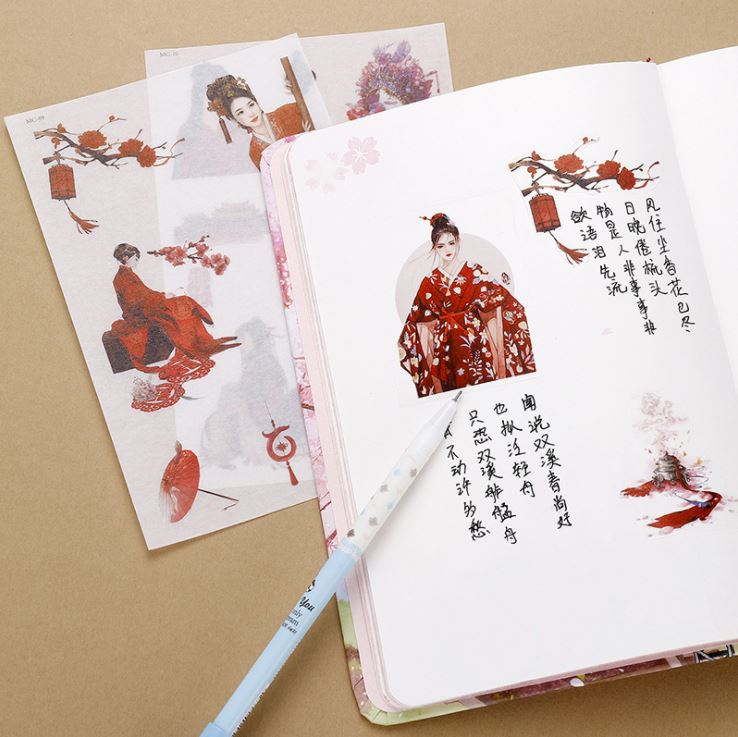 风住尘香花已尽
日晚倦梳头
物是人非事事非
欲语泪先流
闻说双溪春尚好
也拟泛轻舟
只恐双溪舴艋舟
不动许多愁
You